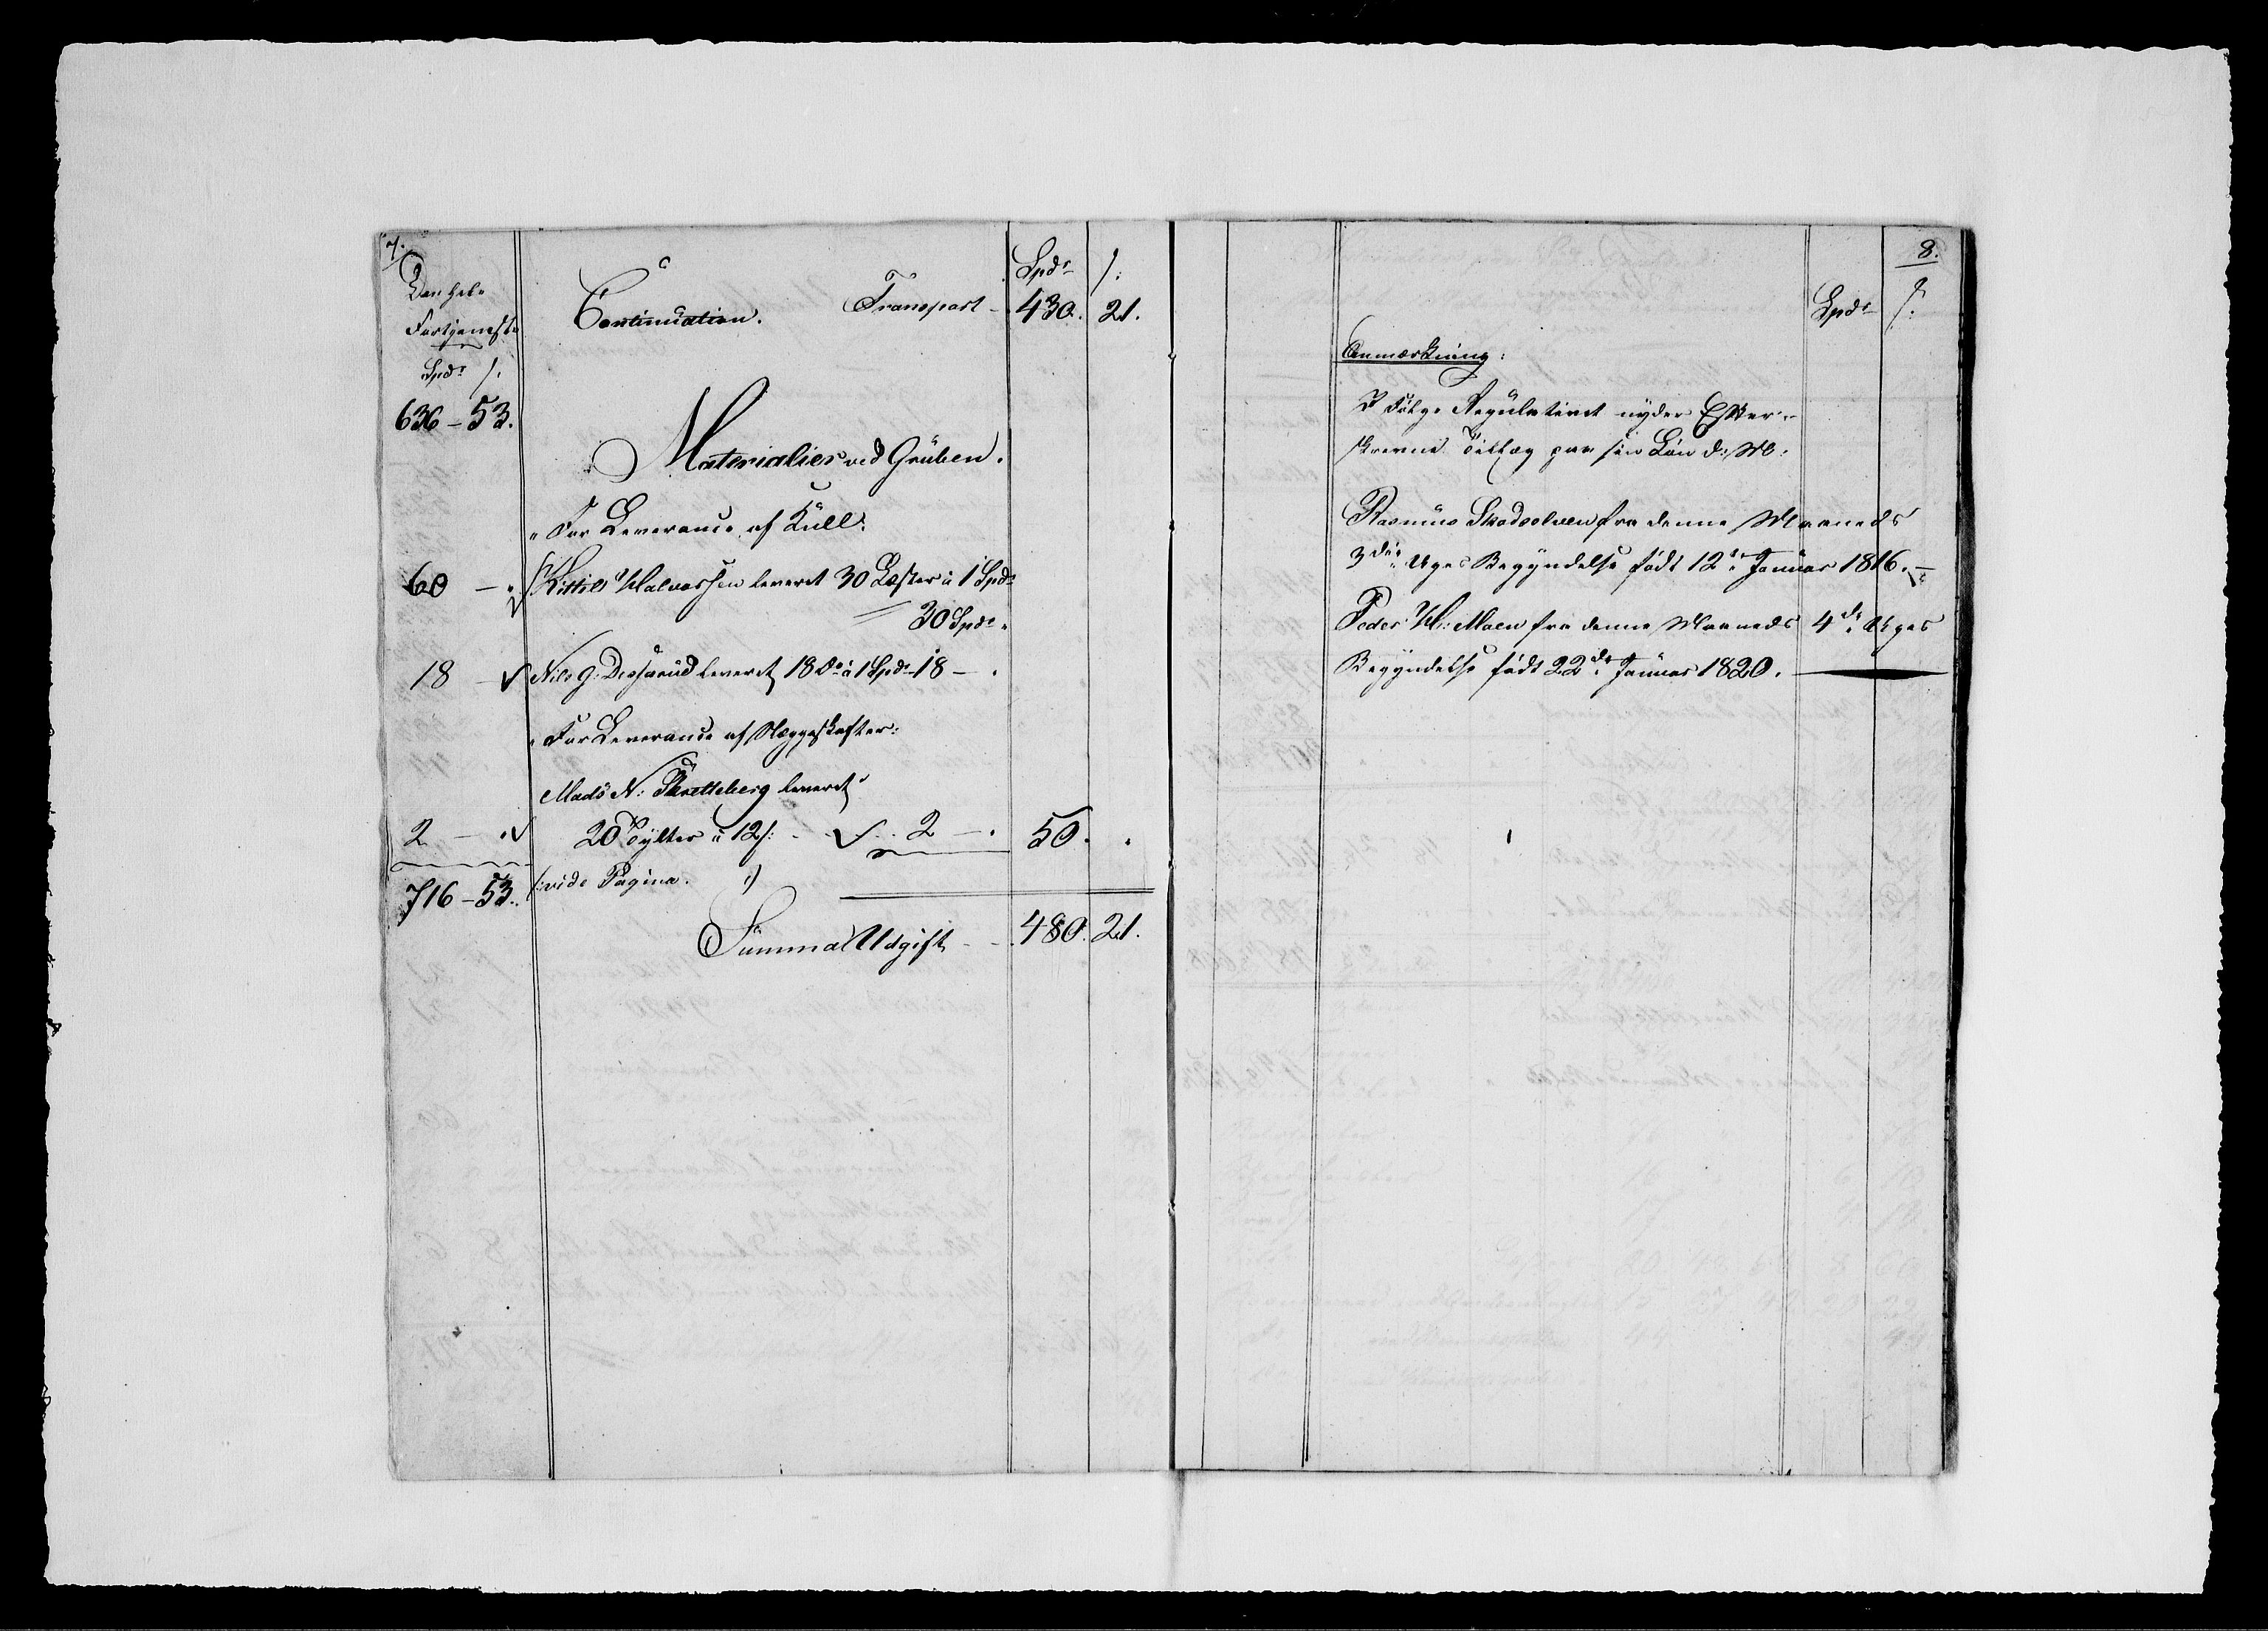 7.
Den hele
Fortjeneste
Spd: ſ:
636 – 53.
Continuation. Transport – 430. 21.
Spd: ſ:
Materialier ved Gruben.
" For Leverance af Kull:
60 – " Kittil Halvorsen leveret 30 Læster à 1 Spd:
30 Spd: "
18 – Nils G: leveret 18 Do à 1 Spd: 18 – "
" For Leverance af Slæggeskafter:
Mads N: leveret
2 – " 20 Tylter à 12 ſ: – 2 – " 50. "
716 – 53. (: vide Pagina. :)
Summa Udgift – – 480. 21.
8.
Spd: ſ:
Anmærkning:
I Følge Regulativet nyder Efter-
skrevne Tillæg paa sin Løn d: M:
Rasmus Skodvolven fra denne Maaneds
3die Uges Begyndelse født 12te Januar 1816. –
Peder H: Moen fra denne Maaneds 4de Uges
Begyndelse født 22de Januar 1820.